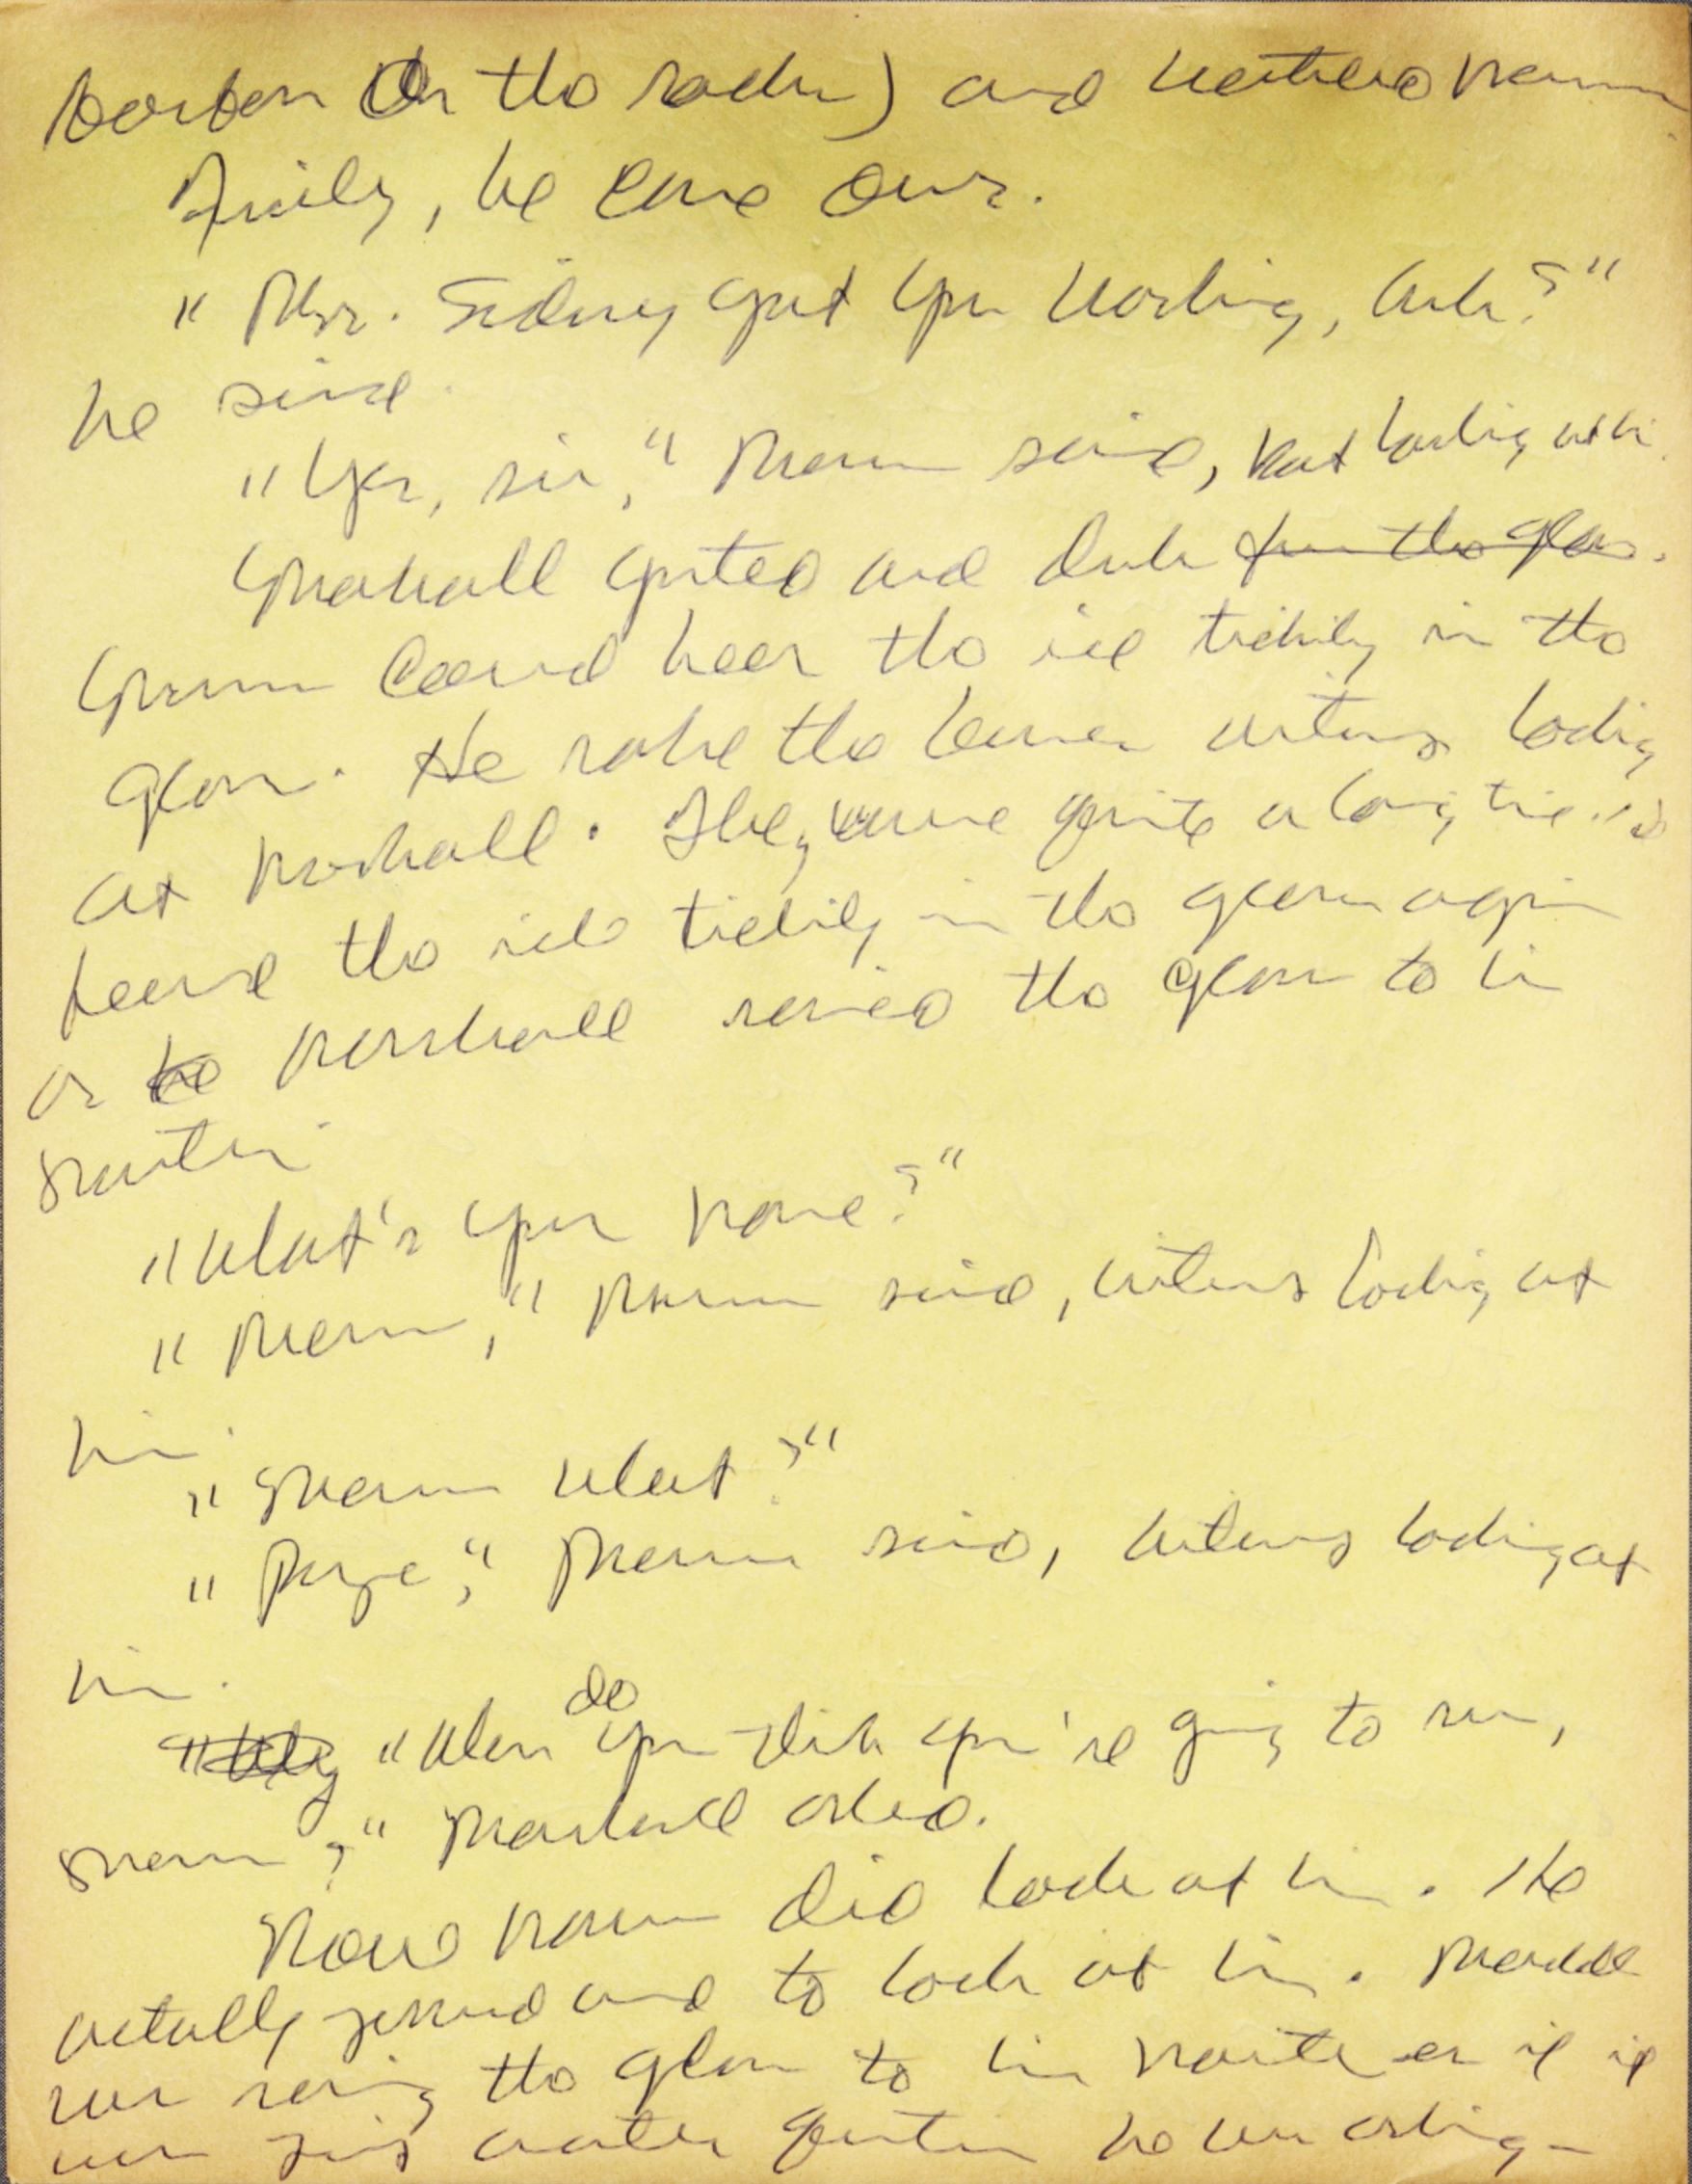 Bonbon On the road) and watched Marcus
Finally, he came over.
"Mr. Sidney got you working, huh?"
he said.
"Yes, sir," Marcus said, not looking at him.
Marshall grunted and drunk from the glass.
Marcus could hear the ice tickling in the
glass. He raked the leaves without looking
at Marshall. They were quite a long time. He
heard the ice tickling in the glass again
as he Marshall raised the glass to his
mouth.
"What's your name?"
"Marcus," Marcus said, without looking at
him.
"Marcus what?"
"Payne," Marcus said, without looking at
him.
"Why "When do you think you're going to run,
Marcus?" Marshall asked.
Now Marcus did look at him. He
actually turned around to look at him. Marshall
was raising the glass to his mouth as if it
was just another question he was asking—